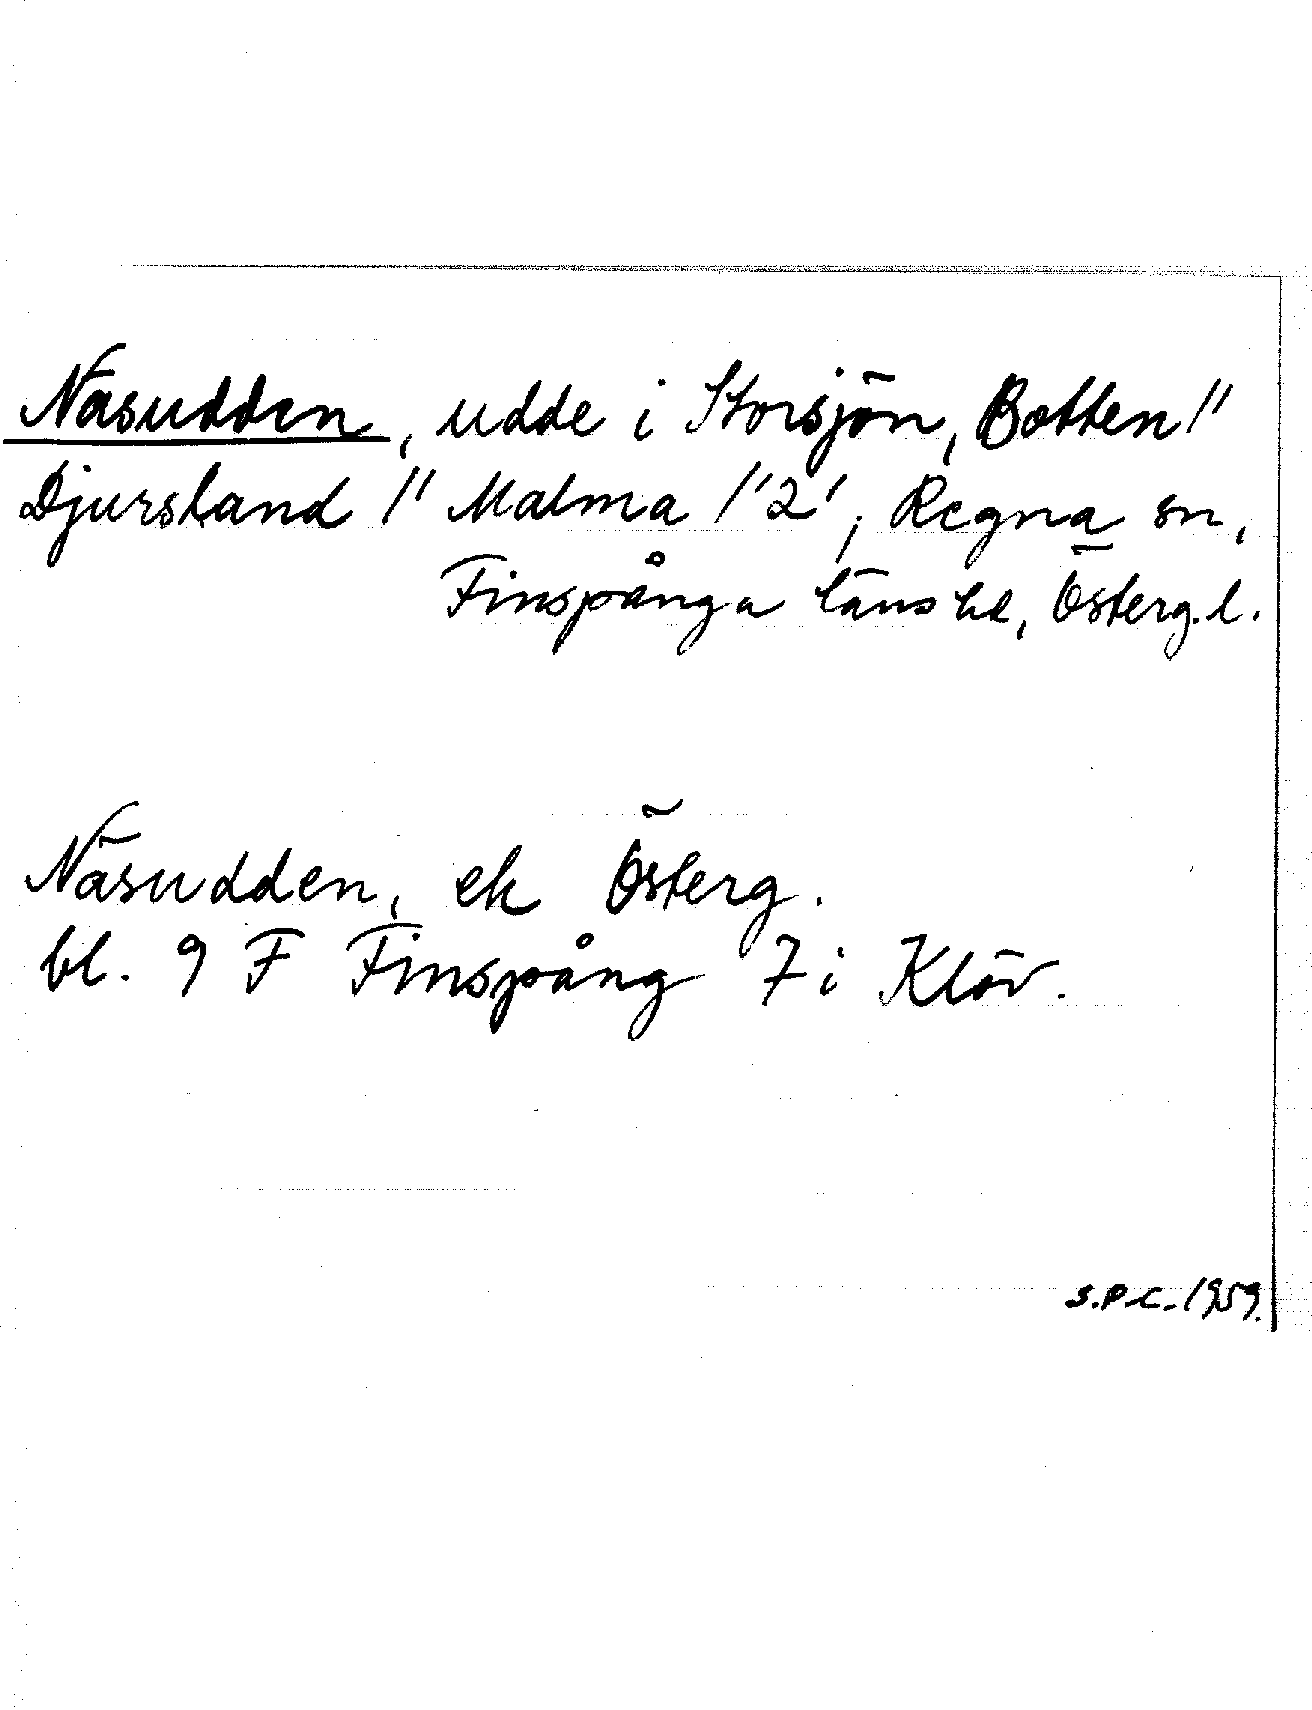 Näsudden, udde i Storsjön, Botten 1''
Djursland 1'' Malma 1'2', Regna sn,
Finspånga länshd, Österg. l.
Näsudden, ek Österg.
bl. 9 F Finspång 7 i Klöv.
S.P.C. 1959.